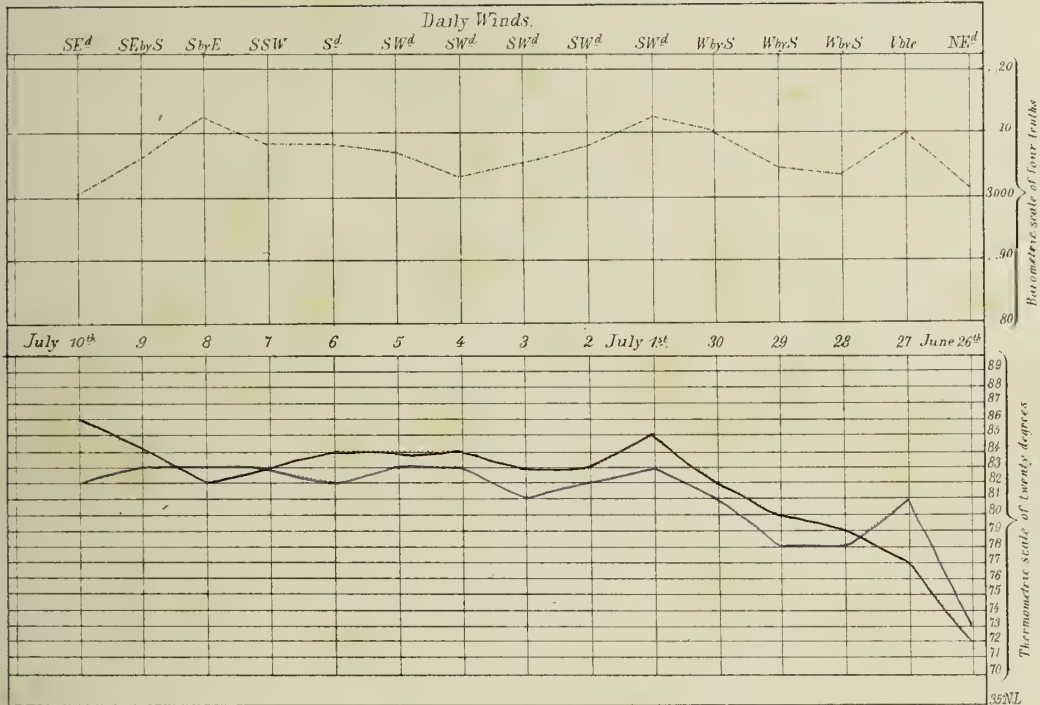 Daily Winds.
SEᵈ SEbyS SbyE SSW Sᵈ. SWᵈ SWᵈ SWᵈ SWᵈ SWᵈ WbyS WbyS WbyS Vble NEᵈ
.20
10
3000
.90
80
Barometric scale of four tenths
July 10ᵗʰ 9 8 7 6 5 4 3 2 July 1.ˢᵗ 30 29 28 27 June 26ᵗʰ
89
88
87
86
85
84
83
82
81
80
79
78
77
76
75
74
73
72
71
70
Thermometric scale of twenty degrees
35°NL